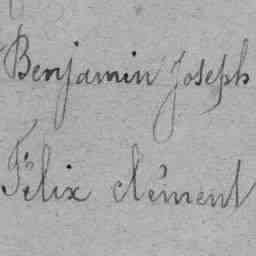 Benjamin Joseph
Félix clément